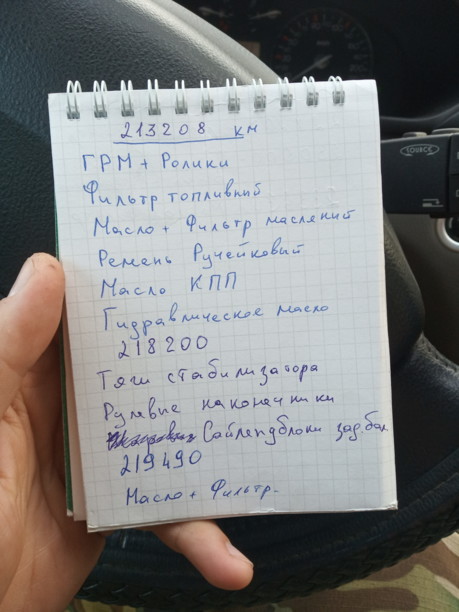 213208 км
ГРМ + Ролики
Фильтр топливный
Масло + Фильтр масляний
Ремень Ручейковый
Масло КПП
Гидравлическое масло
218200
Тяги стабилизатора
Рулевые наконечники
Сайлендблоки зад.бал
219490
Масло + Фильтр.
SOURCE